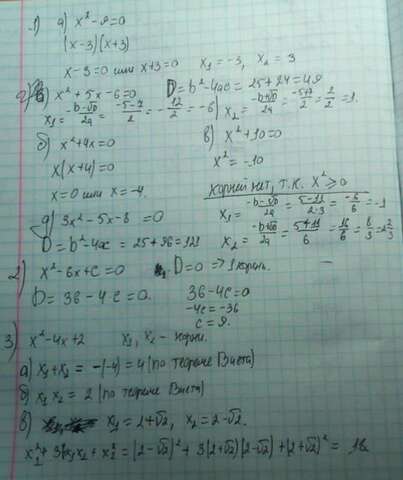 1) а) x² - 9 = 0
(x-3)(x+3)
x - 3 = 0 или x+3=0 x₁ = -3, x₂ = 3
x² + 5x - 6 = 0 D = b² - 4ac = 25 + 24 = 49
x₁ = (-b-√D)/2a = (-5-7)/2 = -12/2 = -6 x₂ = (-b+√D)/2a = (-5+7)/2 = 2/2 = 1.
б) x² + 4x = 0 в) x² + 10 = 0
x(x+4) = 0 x² = -10
x = 0 или x = -4. Корней нет, т.к. x² ≥ 0
д) 3x² - 5x - 8 = 0 x₁ = (-b-√D)/2a = (5-11)/2·3 = -6/6 = -1
D = b² - 4ac = 25 + 96 = 121 x₂ = (-b+√D)/2a = (5+11)/6 = 16/6 = 8/3 = 2 2/3
2) x² - 6x + c = 0 D = 0 => 1 корень.
D = 36 - 4c = 0. 36 - 4c = 0
-4c = -36
c = 9.
3) x² - 4x + 2 x₁, x₂ - корни.
а) x₁ + x₂ = -(-4) = 4 (по теореме Виета)
б) x₁ x₂ = 2 (по теореме Виета)
в) x₁ = 2+√2, x₂ = 2-√2.
x₂² + 3x₁x₂ + x₁² = (2-√2)² + 3(2+√2)(2-√2) + (2+√2)² = 18